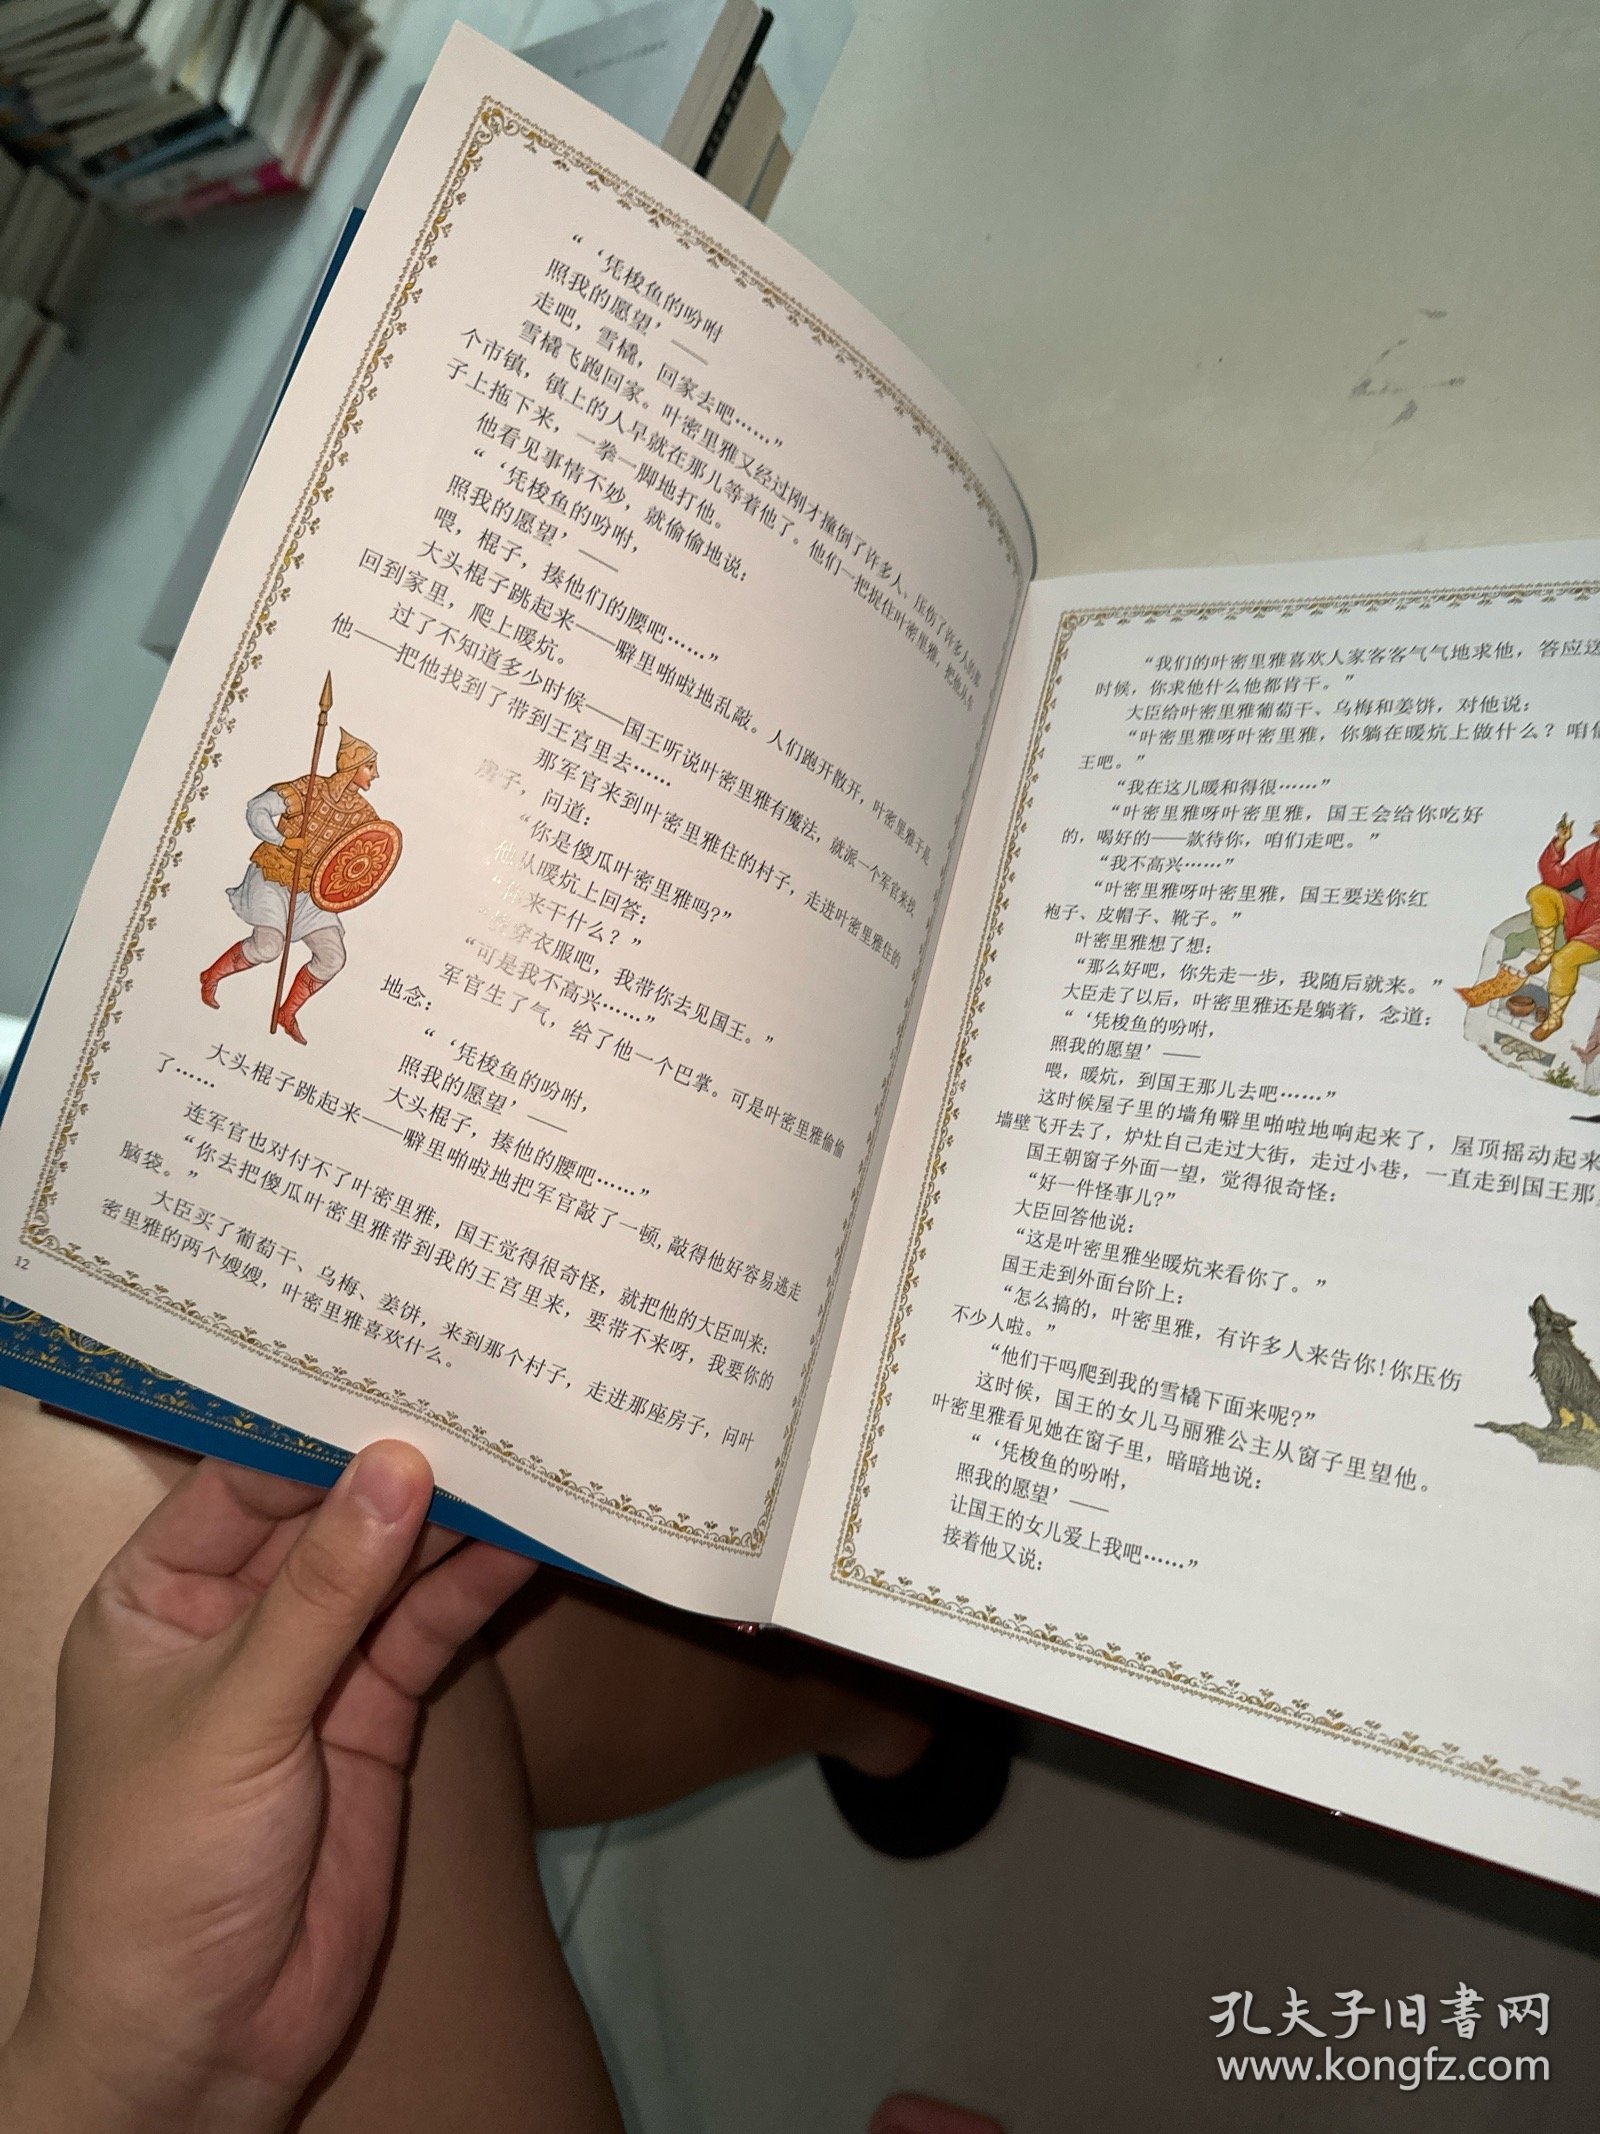 “‘凭梭鱼的吩咐
照我的愿望’——
走吧，雪橇，回家去吧……”
雪橇飞跑回家。叶密里雅又经过刚才撞倒了许多人、压伤了许多人的那
个市镇，镇上的人早就在那儿等着他了。他们一把捉住叶密里雅，把他从车
子上拖下来，一拳一脚地打他。
他看见事情不妙，就偷偷地说：
“‘凭梭鱼的吩咐，
照我的愿望’——
喂，棍子，揍他们的腰吧……”
大头棍子跳起来——噼里啪啦地乱敲。人们跑开散开，叶密里雅于是
回到家里，爬上暖炕。
过了不知道多少时候——国王听说叶密里雅有魔法，就派一个军官来找
他——把他找到了带到王宫里去……
那军官来到叶密里雅住的村子，走进叶密里雅住的
房子，问道：
“你是傻瓜叶密里雅吗？”
他从暖炕上回答：
“你来干什么？”
穿衣服吧，我带你去见国王。”
“可是我不高兴……”
军官生了气，给了他一个巴掌。可是叶密里雅偷偷
地念：
“‘凭梭鱼的吩咐，
照我的愿望’——
大头棍子，揍他的腰吧……”
大头棍子跳起来——噼里啪啦地把军官敲了一顿，敲得他好容易逃走
了……
连军官也对付不了叶密里雅，国王觉得很奇怪，就把他的大臣叫来：
“你去把傻瓜叶密里雅带到我的王宫里来，要带不来呀，我要你的
脑袋。”
大臣买了葡萄干、乌梅、姜饼，来到那个村子，走进那座房子，问叶
密里雅的两个嫂嫂，叶密里雅喜欢什么。
12
“我们的叶密里雅喜欢人家客客气气地求他，答应送
时候，你求他什么他都肯干。”
大臣给叶密里雅葡萄干、乌梅和姜饼，对他说：
“叶密里雅呀叶密里雅，你躺在暖炕上做什么？咱们
王吧。”
“我在这儿暖和得很……”
“叶密里雅呀叶密里雅，国王会给你吃好
的，喝好的——款待你，咱们走吧。”
“我不高兴……”
“叶密里雅呀叶密里雅，国王要送你红
袍子、皮帽子、靴子。”
叶密里雅想了想：
“那么好吧，你先走一步，我随后就来。”
大臣走了以后，叶密里雅还是躺着，念道：
“‘凭梭鱼的吩咐，
照我的愿望’——
喂，暖炕，到国王那儿去吧……”
这时候屋子里的墙角噼里啪啦地响起来了，屋顶摇动起来
墙壁飞开去了，炉灶自己走过大街，走过小巷，一直走到国王那
国王朝窗子外面一望，觉得很奇怪：
“好一件怪事儿？”
大臣回答他说：
“这是叶密里雅坐暖炕来看你了。”
国王走到外面台阶上：
“怎么搞的，叶密里雅，有许多人来告你！你压伤
不少人啦。”
“他们干吗爬到我的雪橇下面来呢？”
这时候，国王的女儿马丽雅公主从窗子里望他。
叶密里雅看见她在窗子里，暗暗地说：
“‘凭梭鱼的吩咐，
照我的愿望’——
让国王的女儿爱上我吧……”
接着他又说：
孔夫子旧书网
www.kongfz.com